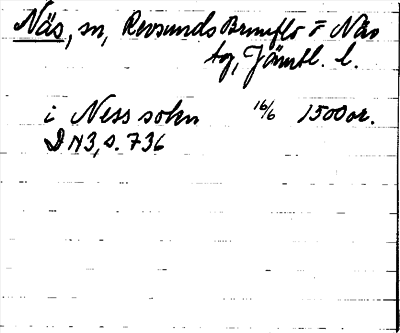 Näs, sn, Revsunds Brunflo o Näs
tg, Jämtl. l.
i Ness sokn 16/6 1500 or.
DN3, s. 736